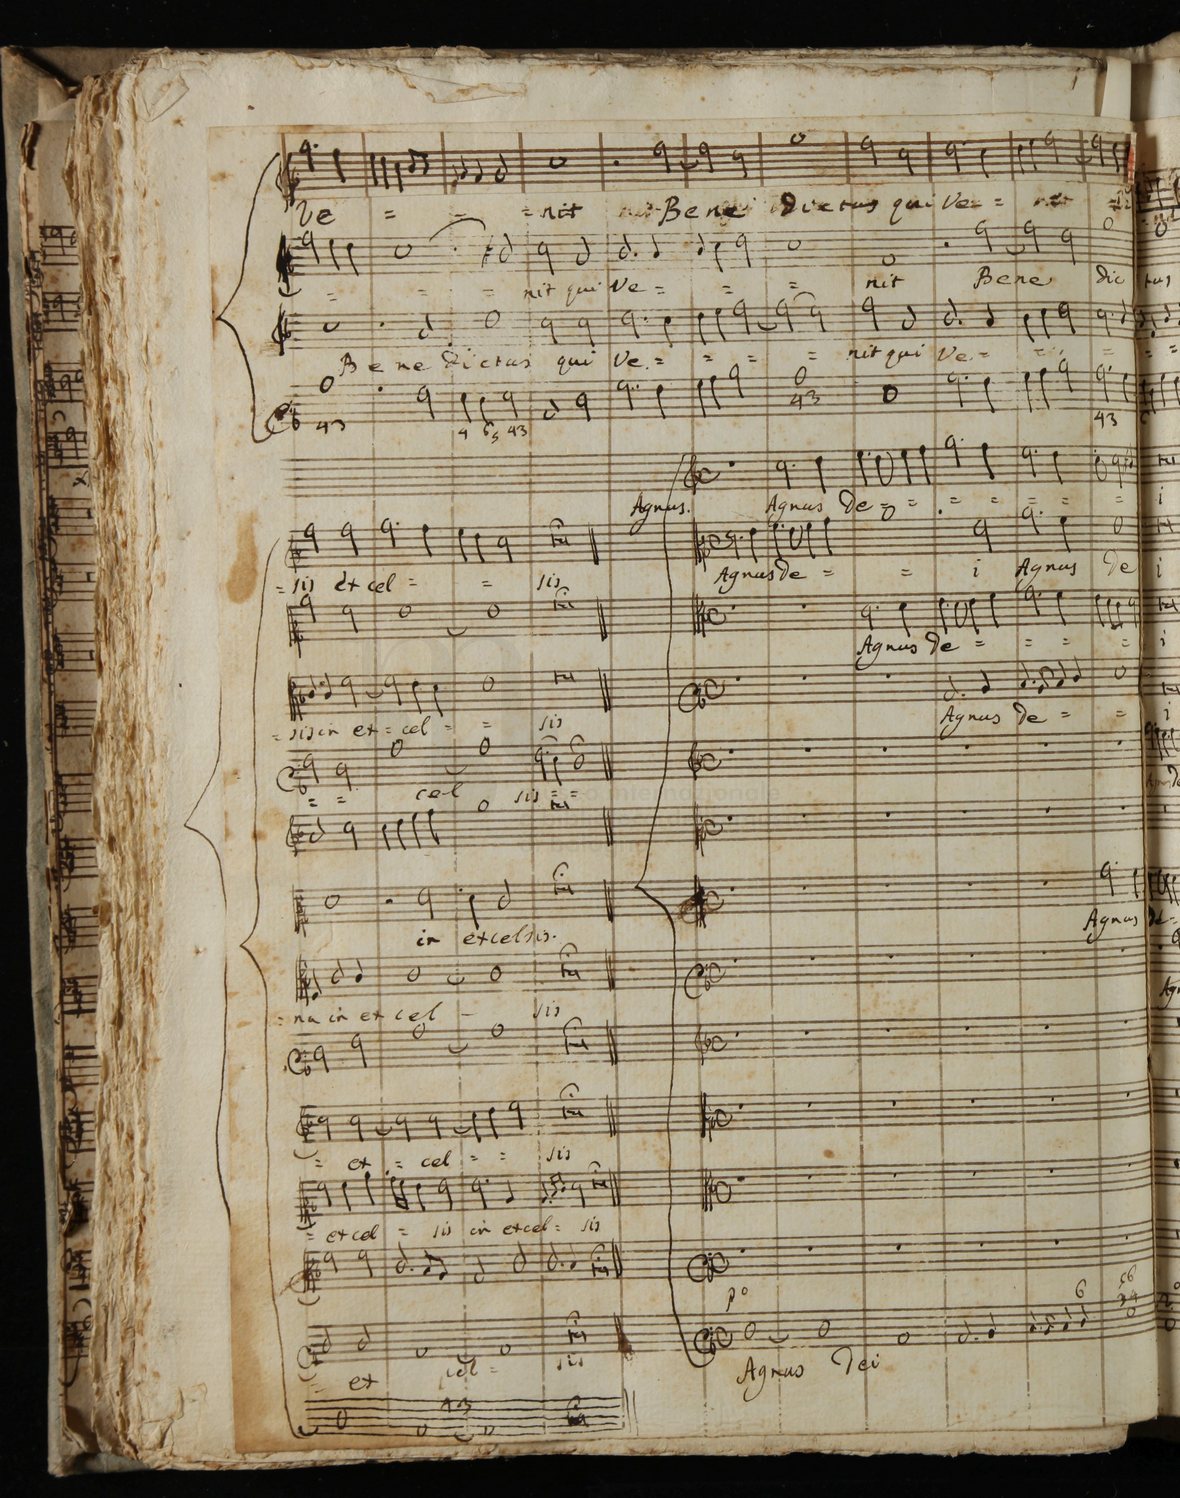 Ve = = = nit Bene Dictus qui Ve = =
= = = nit qui Ve = = = nit Bene Dic tus
Bene Dictus qui Ve = = = = nit qui Ve = = =
43 4 65 43 43 43
Agnus. Agnus De = = = = = = = i
= sis excel = = sis Agnus De = = i Agnus De i
Agnus De = = = = i
= sis in ex = cel = = sis Agnus De = = i
= = cel sis = =
in excelsis. Agnus De =
= na in excel - sis
= ex = cel = = sis
= excel = sis in excel = sis
po 6 56
34
= ex cel = sis Agnus Dei
43